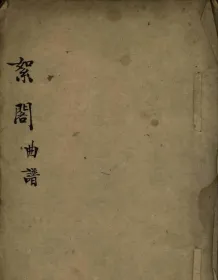 絮閣曲譜